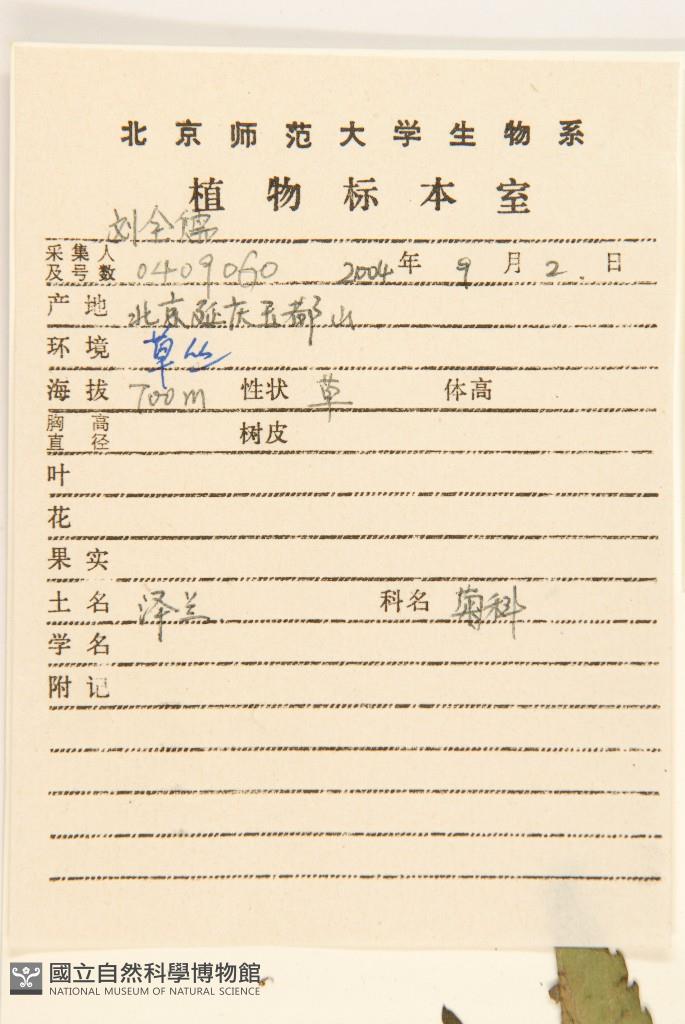 北京师范大学生物系
植物标本室
刘全儒
采集人及号数 0409060 2004年9月2.日
产地 北京延庆玉都山
环境 草丛
海拔 700m 性状 草 体高
胸高直径 树皮
叶
花
果实
土名 泽兰 科名 菊科
学名
附记
國立自然科學博物館
NATIONAL MUSEUM OF NATURAL SCIENCE